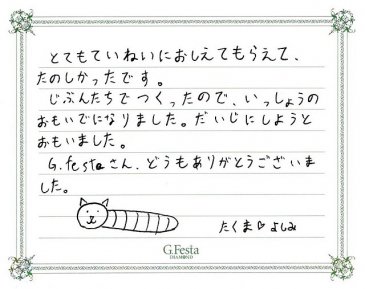 とてもていねいにおしえてもらえて、
たのしかったです。
じぶんたちでつくったので、いっしょうの
おもいでになりました。だいじにしようと
おもいました。
G.festaさん、どうもありがとうございま
した。
たくま♡よしみ
G.Festa
DIAMOND